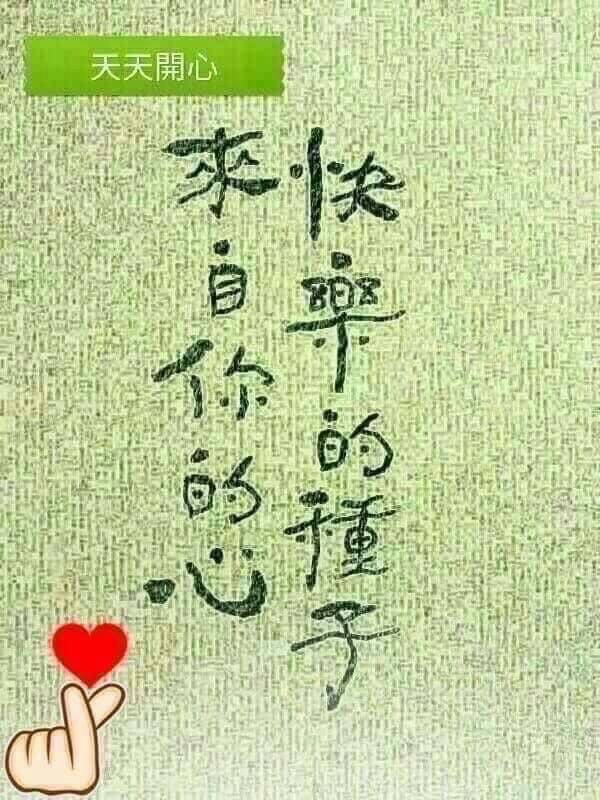 天天開心
快樂的種子
來自你的心